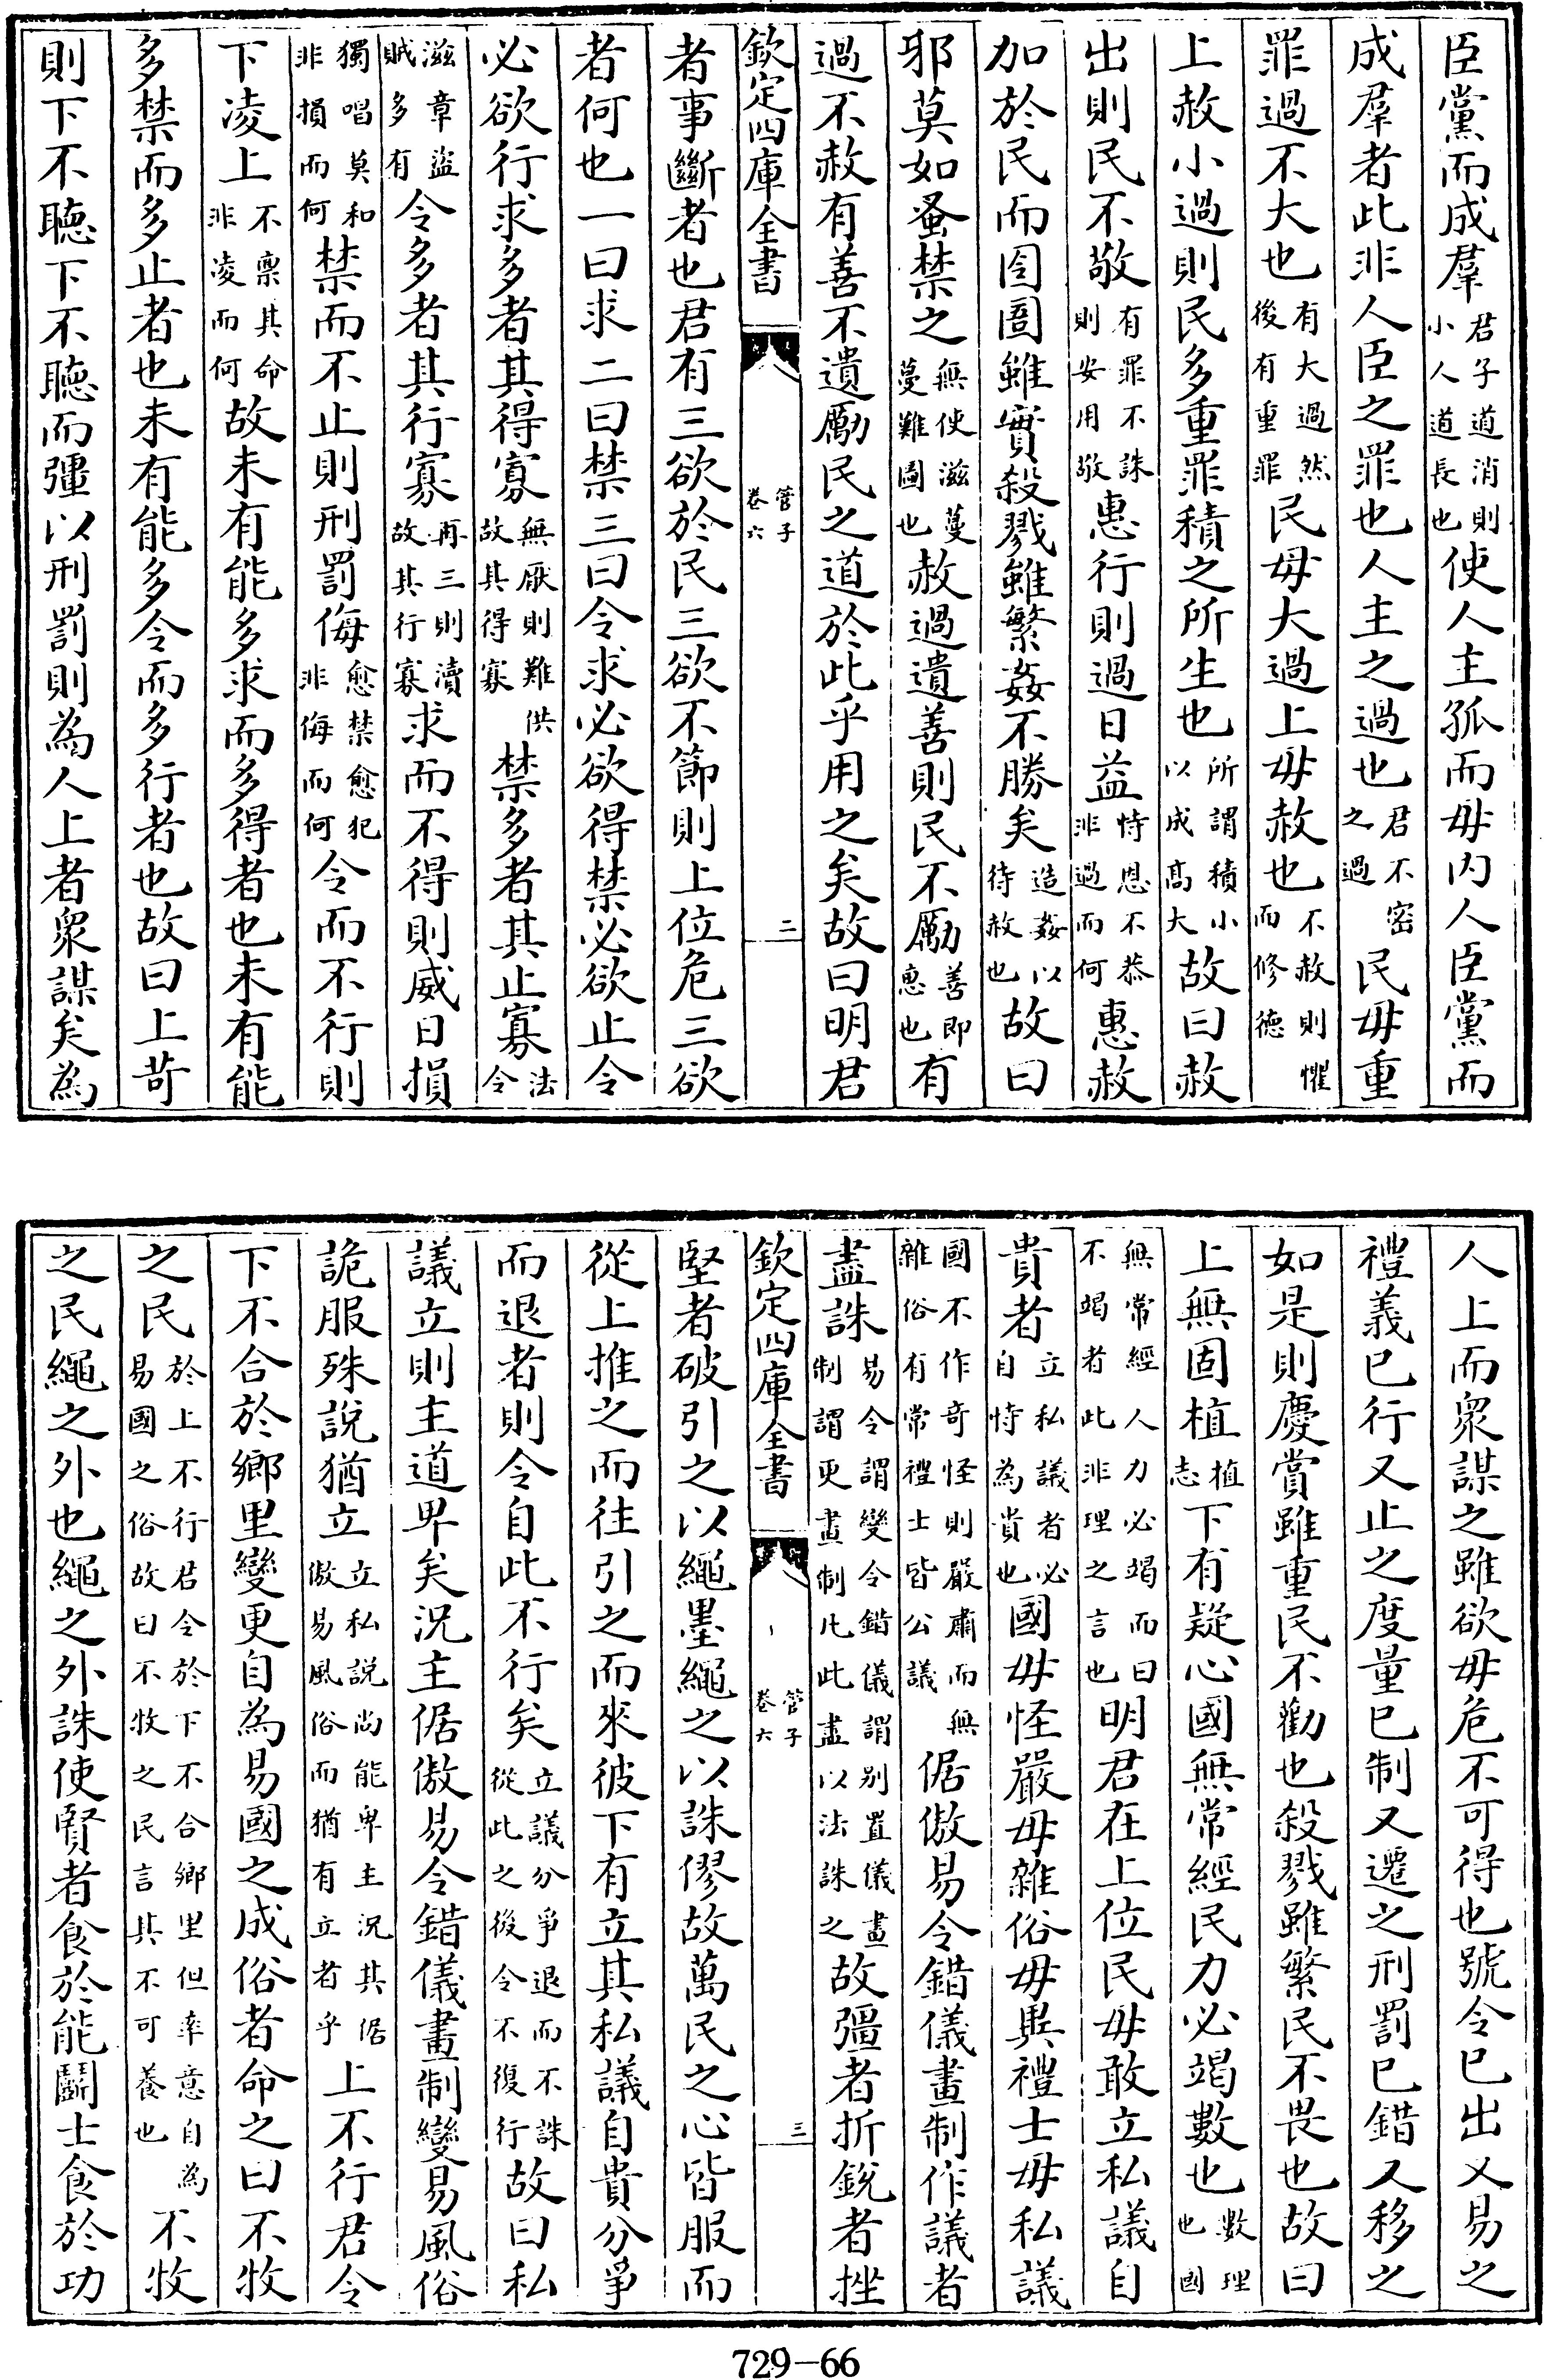 臣黨而成羣君子道消則小人道長也使人主孤而毋内人臣黨而
成羣者此非人臣之罪也人主之過也君不密之過民毋重
罪過不大也有大過然後有重罪民毋大過上毋赦也不赦則懼而修德
上赦小過則民多重罪積之所生也所謂積小以成髙大故曰赦
出則民不敬有罪不誅則安用敬惠行則過日益恃恩不恭非過而何惠赦
加於民而囹圄雖實殺戮雖繁姦不勝矣造姦以待赦也故曰
邪莫如蚤禁之無使滋蔓蔓難圖也赦過遺善則民不勵善即惠也有
過不赦有善不遺勵民之道於此乎用之矣故曰明君
欽定四庫全書 管子卷六 二
者事斷者也君有三欲於民三欲不節則上位危三欲
者何也一曰求二曰禁三曰令求必欲得禁必欲止令
必欲行求多者其得寡無厭則難供故其得寡禁多者其止寡法令
滋章盜賊多有令多者其行寡再三則瀆故其行寡求而不得則威日損
獨唱莫和非損而何禁而不止則刑罰侮愈禁愈犯非侮而何令而不行則
下凌上不禀其命非凌而何故未有能多求而多得者也未有能
多禁而多止者也未有能多令而多行者也故曰上苛
則下不聽下不聽而彊以刑罰則為人上者衆謀矣為
人上而衆謀之雖欲毋危不可得也號令已出又易之
禮義已行又止之度量已制又遷之刑罰已錯又移之
如是則慶賞雖重民不勸也殺戮雖繁民不畏也故曰
上無固植植志下有疑心國無常經民力必竭數也數理也國
無常經人力必竭而曰不竭者此非理之言也明君在上位民毋敢立私議自
貴者立私議者必自恃為貴也國毋怪嚴毋雜俗毋異禮士毋私議
國不作竒怪則嚴肅而無雜俗有常禮士皆公議倨傲易令錯儀畫制作議者
盡誅易令謂變令錯儀謂别置儀畫制謂更畫制凡此盡以法誅之故彊者折銳者挫
欽定四庫全書 管子卷六 三
堅者破引之以繩墨繩之以誅僇故萬民之心皆服而
從上推之而往引之而來彼下有立其私議自貴分爭
而退者則令自此不行矣立議分爭退而不誅從此之後令不復行故曰私
議立則主道卑矣況主倨傲易令錯儀畫制變易風俗
詭服殊說猶立立私說尚能卑主況其倨傲易風俗而猶有立者乎上不行君令
下不合於鄉里變更自為易國之成俗者命之曰不牧
之民於上不行君令於下不合鄉里但率意自為易國之俗故曰不牧之民言其不可養也不牧
之民繩之外也繩之外誅使賢者食於能鬭士食於功
729-66